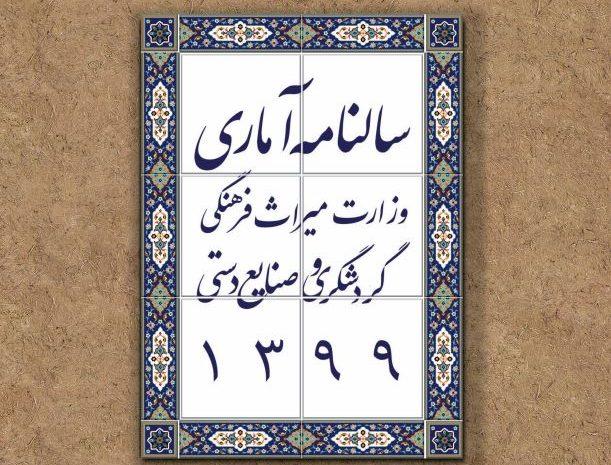 سالنامه آماری
وزارت میراث فرهنگی
گردشگری و صنایع دستی
۱۳۹۹